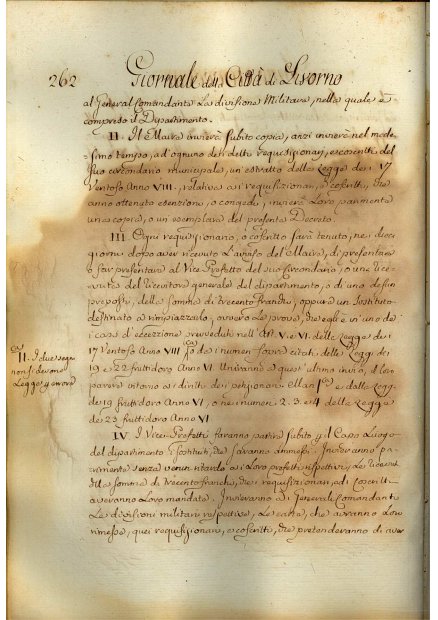 262 Giornale della Città di Livorno
al General Comandante la divisione Militare, nella quale è
compreso il Dipartimento.
II. Il Maire invierà subito copia, anzi invierà nel mede-
simo tempo, ad ognuno dei detti requisizionarj, e coscritti del
suo circondario municipale, un estratto della Legge dei 17
Ventoso Anno VIII, relativa ai requisizionarj, e coscritti, che
anno ottenuto esenzioni, o congedi, invierà loro parimente
una copia, o un esemplare del presente Decreto.
III. Ogni requisizionario, o coscritto sarà tenuto, nei dieci
giorni dopo aver ricevuto l'avviso del Maire, di presentare
o far presentare al Vice Prefetto del suo Circondario, o una rice-
vuta del Ricevitore generale del dipartimento, o di uno dei suoi
preposti, della somma di Trecento franchi, oppure un sostituto
destinato a rimpiazzarlo, ovvero le prove, che egli è in uno dei
casi d'eccezzione preveduti nell'Art. V. e VI. della Legge dei
17 Ventoso Anno VIII
19 e 22 fruttidoro Anno VI. Uniranno a quest'ultimo invio, il loro
parere intorno ai diritti dei petizionarj.
dei 19 fruttidoro Anno VI, o nei numeri 2. 3. e 4 della Legge
de 23 fruttidoro Anno VI
II. I due segni
non si devono
Leggere ora
IV. I Vice Prefetti faranno partire subito p il Capo Luogo
del dipartimento i sostituti, che saranno ammessi. Invieranno pa-
rimente senza verun ritardo ai loro prefetti respettivi, le ricevute
della somma di Trecento franchi, che i requisizionarj, ed i Coscritti
averanno loro mandate. Invieranno ai Generali Comandanti
le divisioni militari respettive, le carte, che avranno loro
rimesse, quei requisizionarj, o coscritti, che pretenderanno di aver